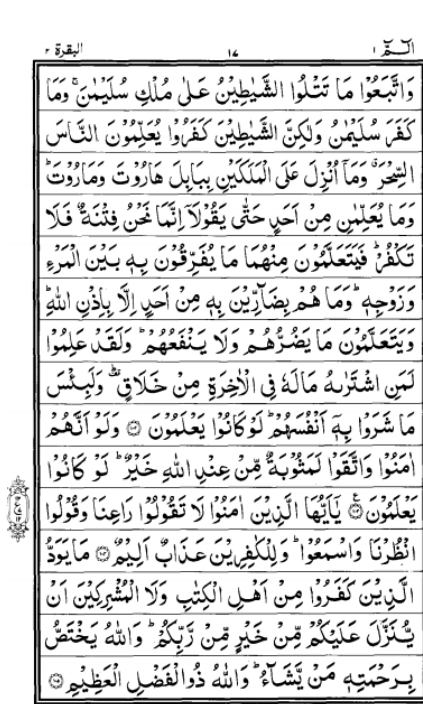 الٓـمّٓ ١ ١٧ البقرة ٢
وَاتَّبَعُوْا مَا تَتْلُوا الشَّيٰطِيْنُ عَلٰى مُلْكِ سُلَيْمٰنَ ۚ وَمَا
كَفَرَ سُلَيْمٰنُ وَلٰكِنَّ الشَّيٰطِيْنَ كَفَرُوْا يُعَلِّمُوْنَ النَّاسَ
السِّحْرَ ۗ وَمَآ اُنْزِلَ عَلَى الْمَلَكَيْنِ بِبَابِلَ هَارُوْتَ وَمَارُوْتَ ؕ
وَمَا يُعَلِّمٰنِ مِنْ اَحَدٍ حَتّٰى يَقُوْلَآ اِنَّمَا نَحْنُ فِتْنَةٌ فَلَا
تَكْفُرْ ؕ فَيَتَعَلَّمُوْنَ مِنْهُمَا مَا يُفَرِّقُوْنَ بِهٖ بَيْنَ الْمَرْءِ
وَزَوْجِهٖ ؕ وَمَا هُمْ بِضَآرِّيْنَ بِهٖ مِنْ اَحَدٍ اِلَّا بِاِذْنِ اللّٰهِ ؕ
وَيَتَعَلَّمُوْنَ مَا يَضُرُّهُمْ وَلَا يَنْفَعُهُمْ ؕ وَلَقَدْ عَلِمُوْا
لَمَنِ اشْتَرٰىهُ مَا لَهٗ فِى الْاٰخِرَةِ مِنْ خَلَاقٍ ۛؕ وَلَبِئْسَ
مَا شَرَوْا بِهٖٓ اَنْفُسَهُمْ ؕ لَوْ كَانُوْا يَعْلَمُوْنَ ۝١٠٢ وَلَوْ اَنَّهُمْ
اٰمَنُوْا وَاتَّقَوْا لَمَثُوْبَةٌ مِّنْ عِنْدِ اللّٰهِ خَيْرٌ ؕ لَوْ كَانُوْا
يَعْلَمُوْنَ ۝١٠٣ يٰٓاَيُّهَا الَّذِيْنَ اٰمَنُوْا لَا تَقُوْلُوْا رَاعِنَا وَقُوْلُوا
انْظُرْنَا وَاسْمَعُوْا ؕ وَلِلْكٰفِرِيْنَ عَذَابٌ اَلِيْمٌ ۝١٠٤ مَا يَوَدُّ
الَّذِيْنَ كَفَرُوْا مِنْ اَهْلِ الْكِتٰبِ وَلَا الْمُشْرِكِيْنَ اَنْ
يُّنَزَّلَ عَلَيْكُمْ مِّنْ خَيْرٍ مِّنْ رَّبِّكُمْ ؕ وَاللّٰهُ يَخْتَصُّ
بِرَحْمَتِهٖ مَنْ يَّشَآءُ ؕ وَاللّٰهُ ذُو الْفَضْلِ الْعَظِيْمِ ۝١٠٥